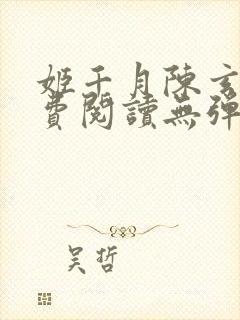 姬千月陳玄
費閱讀無彈
吴哲